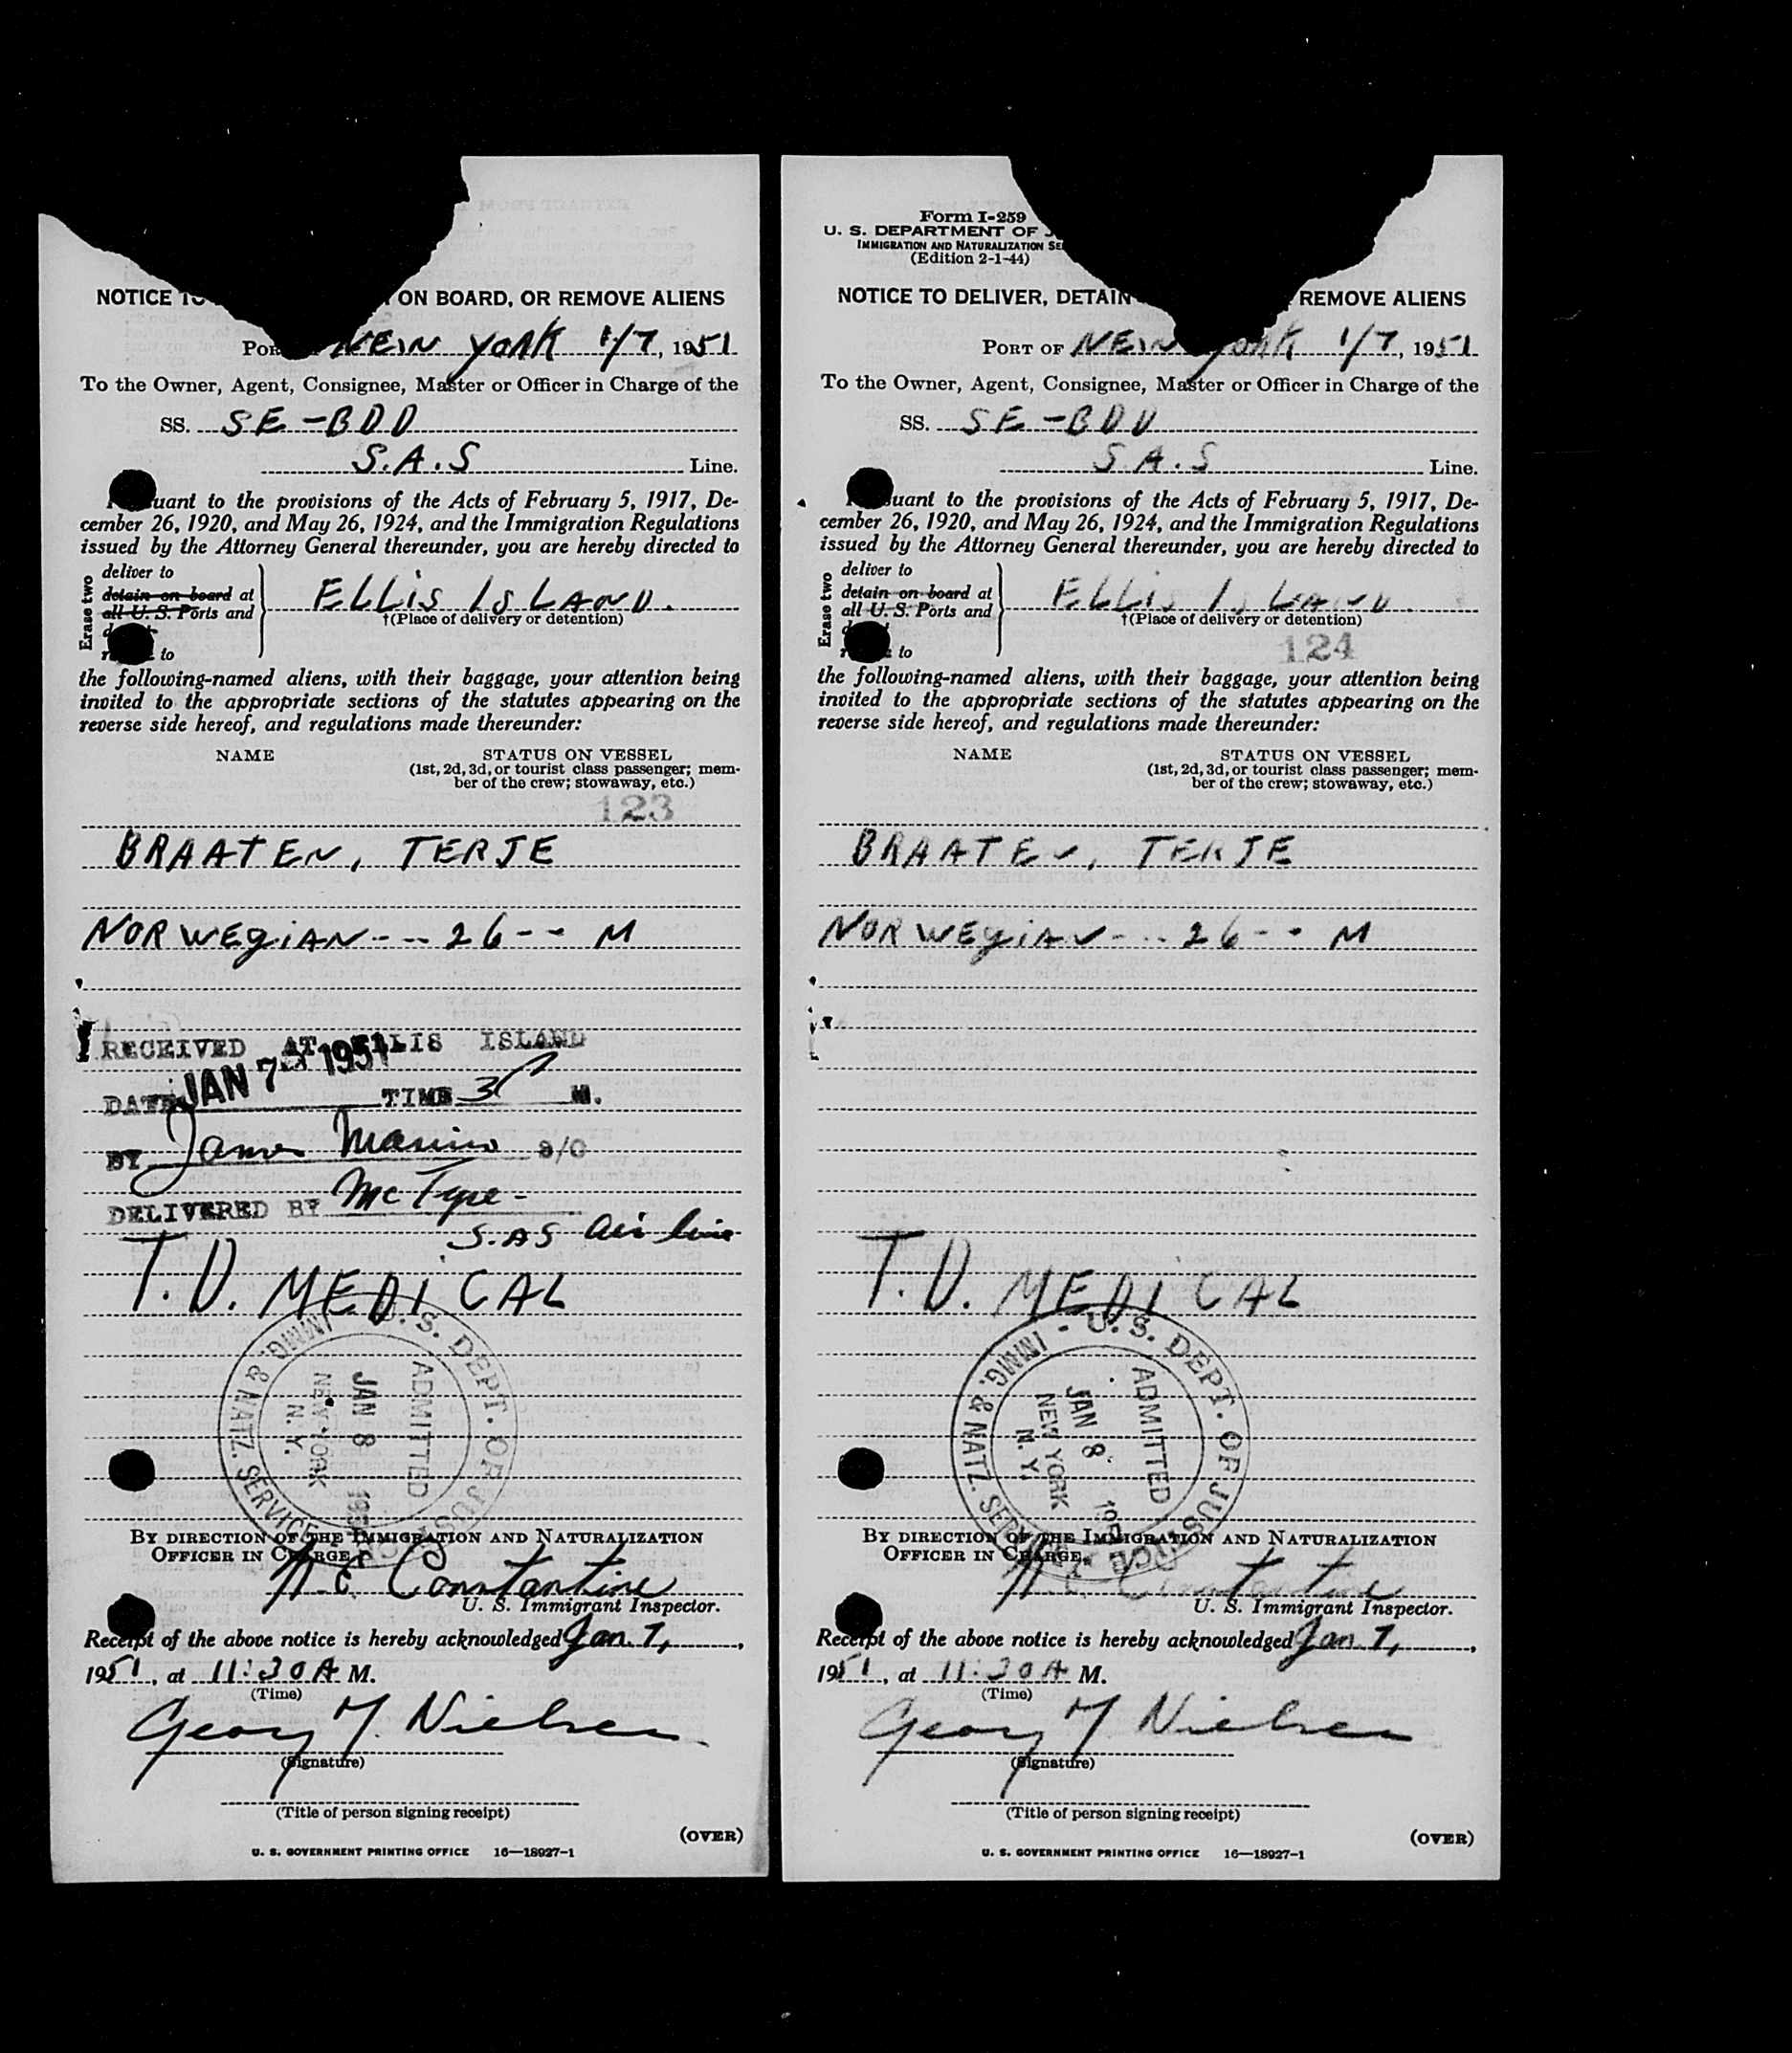 NOTICE TO ON BOARD, OR REMOVE ALIENS
NEW YORK 1/7, 1951
To the Owner, Agent, Consignee, Master or Officer in Charge of the
SS. SE-BDD
S.A.S Line.
uant to the provisions of the Acts of February 5, 1917, De-
cember 26, 1920, and May 26, 1924, and the Immigration Regulations
issued by the Attorney General thereunder, you are hereby directed to
Erase two
deliver to
detain on board at
all U. S. Ports and
to
ELLIS ISLAND.
†(Place of delivery or detention)
the following-named aliens, with their baggage, your attention being
invited to the appropriate sections of the statutes appearing on the
reverse side hereof, and regulations made thereunder:
NAME STATUS ON VESSEL
(1st, 2d, 3d, or tourist class passenger; mem-
ber of the crew; stowaway, etc.)
123
BRAATEN, TERJE
NORWEGIAN --- 26 -- M
RECEIVED AT ELLIS ISLAND
DATE JAN 7 1951 TIME M.
BY James Marino
DELIVERED BY
S.AS Air line
T.D. MEDICAL
IMMG. & NATZ. SERVICE U. S. DEPT. OF JUSTICE
ADMITTED
JAN 8
NEW YORK
N. Y.
BY DIRECTION OF THE IMMIGRATION AND NATURALIZATION
OFFICER IN CHARGE,
Constantine
U. S. Immigrant Inspector.
Receipt of the above notice is hereby acknowledged Jan 7,
1951, at 11:30 A M.
(Time)
Nielsen
(Signature)
(Title of person signing receipt)
(OVER)
U. S. GOVERNMENT PRINTING OFFICE 16—18927-1
Form I-259
U. S. DEPARTMENT OF J
IMMIGRATION AND NATURALIZATION SE
(Edition 2-1-44)
NOTICE TO DELIVER, DETAIN REMOVE ALIENS
PORT OF NEW YORK 1/7, 1951
To the Owner, Agent, Consignee, Master or Officer in Charge of the
SS. SE-BDD
S.A.S Line.
uant to the provisions of the Acts of February 5, 1917, De-
cember 26, 1920, and May 26, 1924, and the Immigration Regulations
issued by the Attorney General thereunder, you are hereby directed to
Erase two
deliver to
detain on board at
all U. S. Ports and
to
ELLIS ISLAND.
†(Place of delivery or detention)
124
the following-named aliens, with their baggage, your attention being
invited to the appropriate sections of the statutes appearing on the
reverse side hereof, and regulations made thereunder:
NAME STATUS ON VESSEL
(1st, 2d, 3d, or tourist class passenger; mem-
ber of the crew; stowaway, etc.)
BRAATEN, TERJE
NORWEGIAN --- 26 -- M
T.D. MEDICAL
IMMG. & NATZ. SERVICE - U. S. DEPT. OF JUSTICE
ADMITTED
JAN 8
NEW YORK
N. Y.
BY DIRECTION OF THE IMMIGRATION AND NATURALIZATION
OFFICER IN CHARGE,
Constantine
U. S. Immigrant Inspector.
Receipt of the above notice is hereby acknowledged Jan 7,
1951, at 11:30 A M.
(Time)
Nielsen
(Signature)
(Title of person signing receipt)
(OVER)
U. S. GOVERNMENT PRINTING OFFICE 16—18927-1